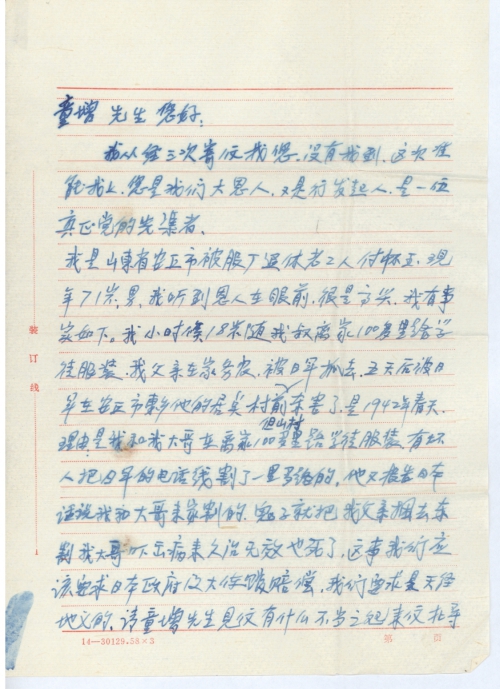 童增 先生 您好.
我从经三次寄仅我您.没有我到.这次准
能我上.您是我们大恩人.又是行发起人.是一位
真正党的先渠者.
我是山東省安丘市被服厂退休老工人付怀玉.现
年71岁.男.我听到恩人在眼前.很是高兴.我有事
家如下.我小时候18岁随我叔离家100多里路学
徒服装.我父亲在家务农.被日军抓去.五天后被日
军在安丘市東乡他的居吴村前杀害了.是1942年春天.
但山村
理由是我和我大哥在离家100多里路学徒服装.有坏
人把日军的电话线割了一里多路的.他又报告日本
话说我和大哥来家割的.鬼子就把我父亲捆去杀
割我大哥吓出病来久治无效也死了.这事我们应
该要求日本政府仅大体赔偿.我们要求是天经
地义的.请童增先生见仅有什么不当之起来仅扎导
装订线
14—30129.58×3
第 页